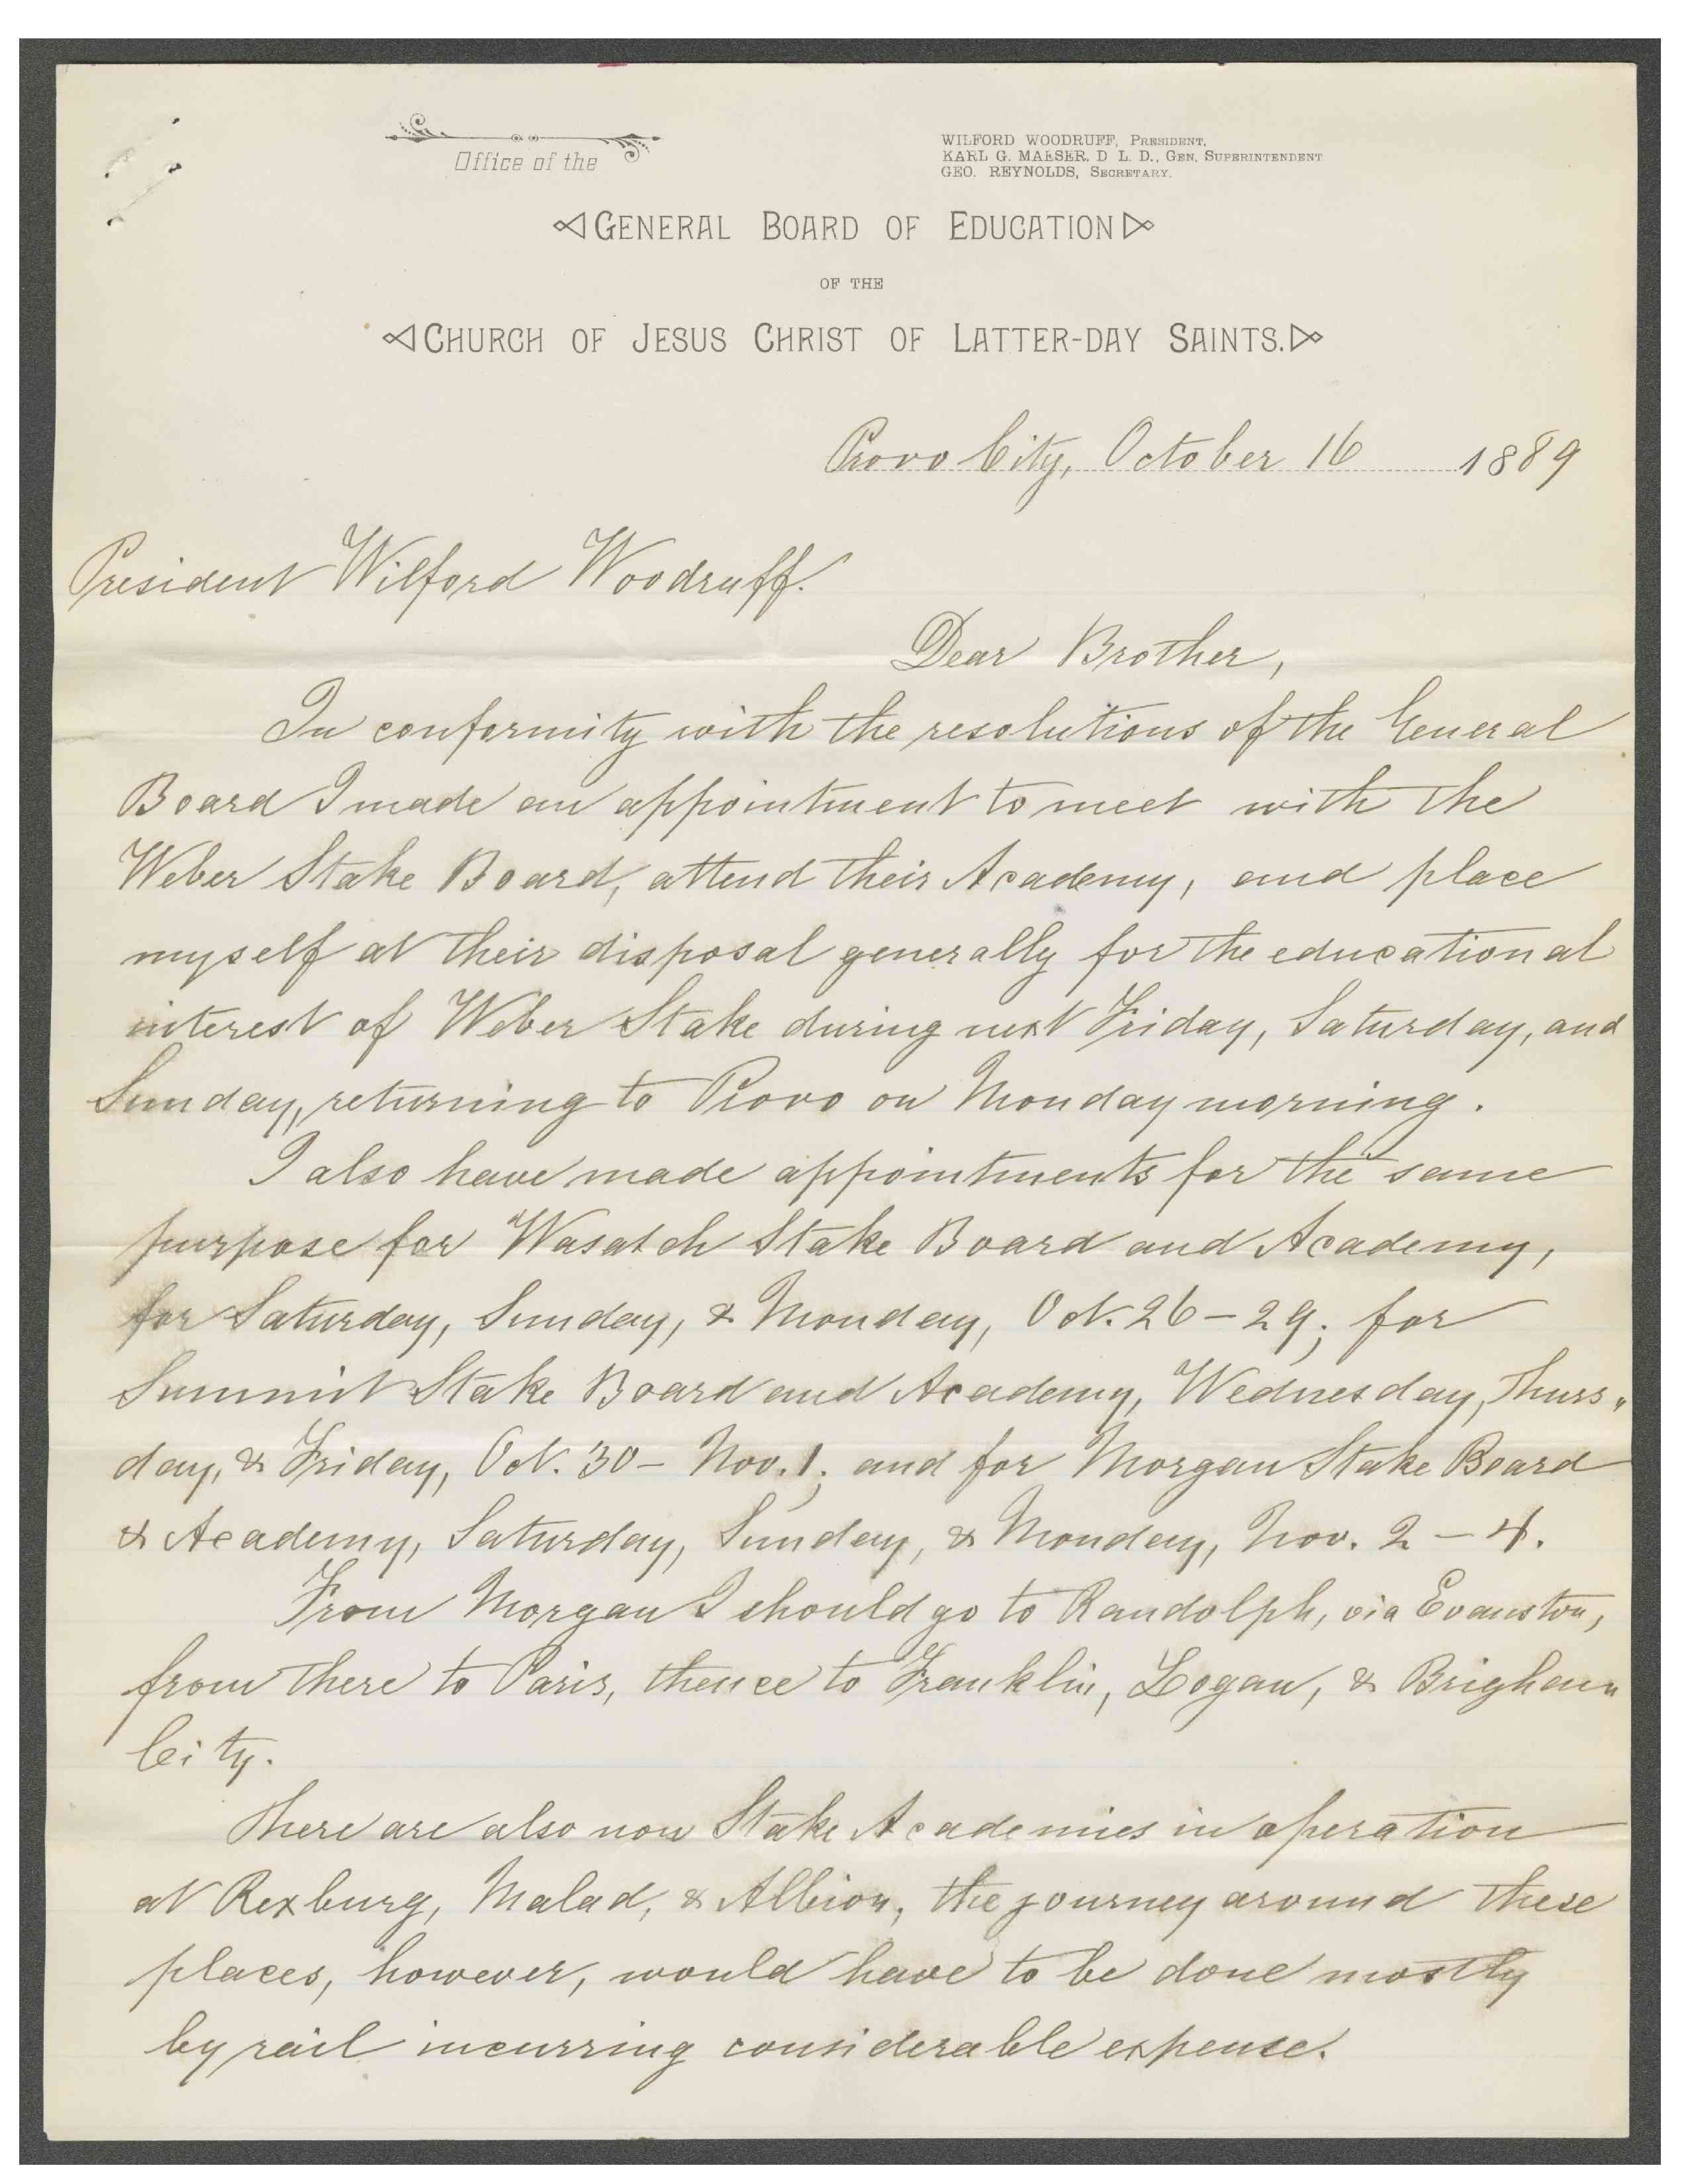 Office of the
WILFORD WOODRUFF, PRESIDENT,
KARL G. MAESER. D L. D., GEN. SUPERINTENDENT
GEO. REYNOLDS, SECRETARY.
GENERAL BOARD OF EDUCATION
OF THE
CHURCH OF JESUS CHRIST OF LATTER-DAY SAINTS.
Provo City, October 16 1889
President Wilford Woodruff.
Dear Brother,
In conformity with the resolutions of the General
Board I made an appointment to meet with the
Weber Stake Board, attend their Academy, and place
myself at their disposal generally for the educational
interest of Weber Stake during next Friday, Saturday, and
Sunday, returning to Provo on Monday morning.
I also have made appointments for the same
purpose for Wasatch Stake Board and Academy,
for Saturday, Sunday, & Monday, Oct. 26 – 29; for
Summit Stake Board and Academy, Wednesday, Thurs„
day, & Friday, Oct. 30 – Nov. 1; and for Morgan Stake Board
& Academy, Saturday, Sunday, & Monday, Nov. 2 – 4.
From Morgan I should go to Randolph, via Evanston,
from there to Paris, thence to Franklin, Logan, & Brigham
City.
There are also now Stake Academies in operation
at Rexburg, Malad, & Albion; the journey around these
places, however, would have to be done mostly
by rail incurring considerable expense.